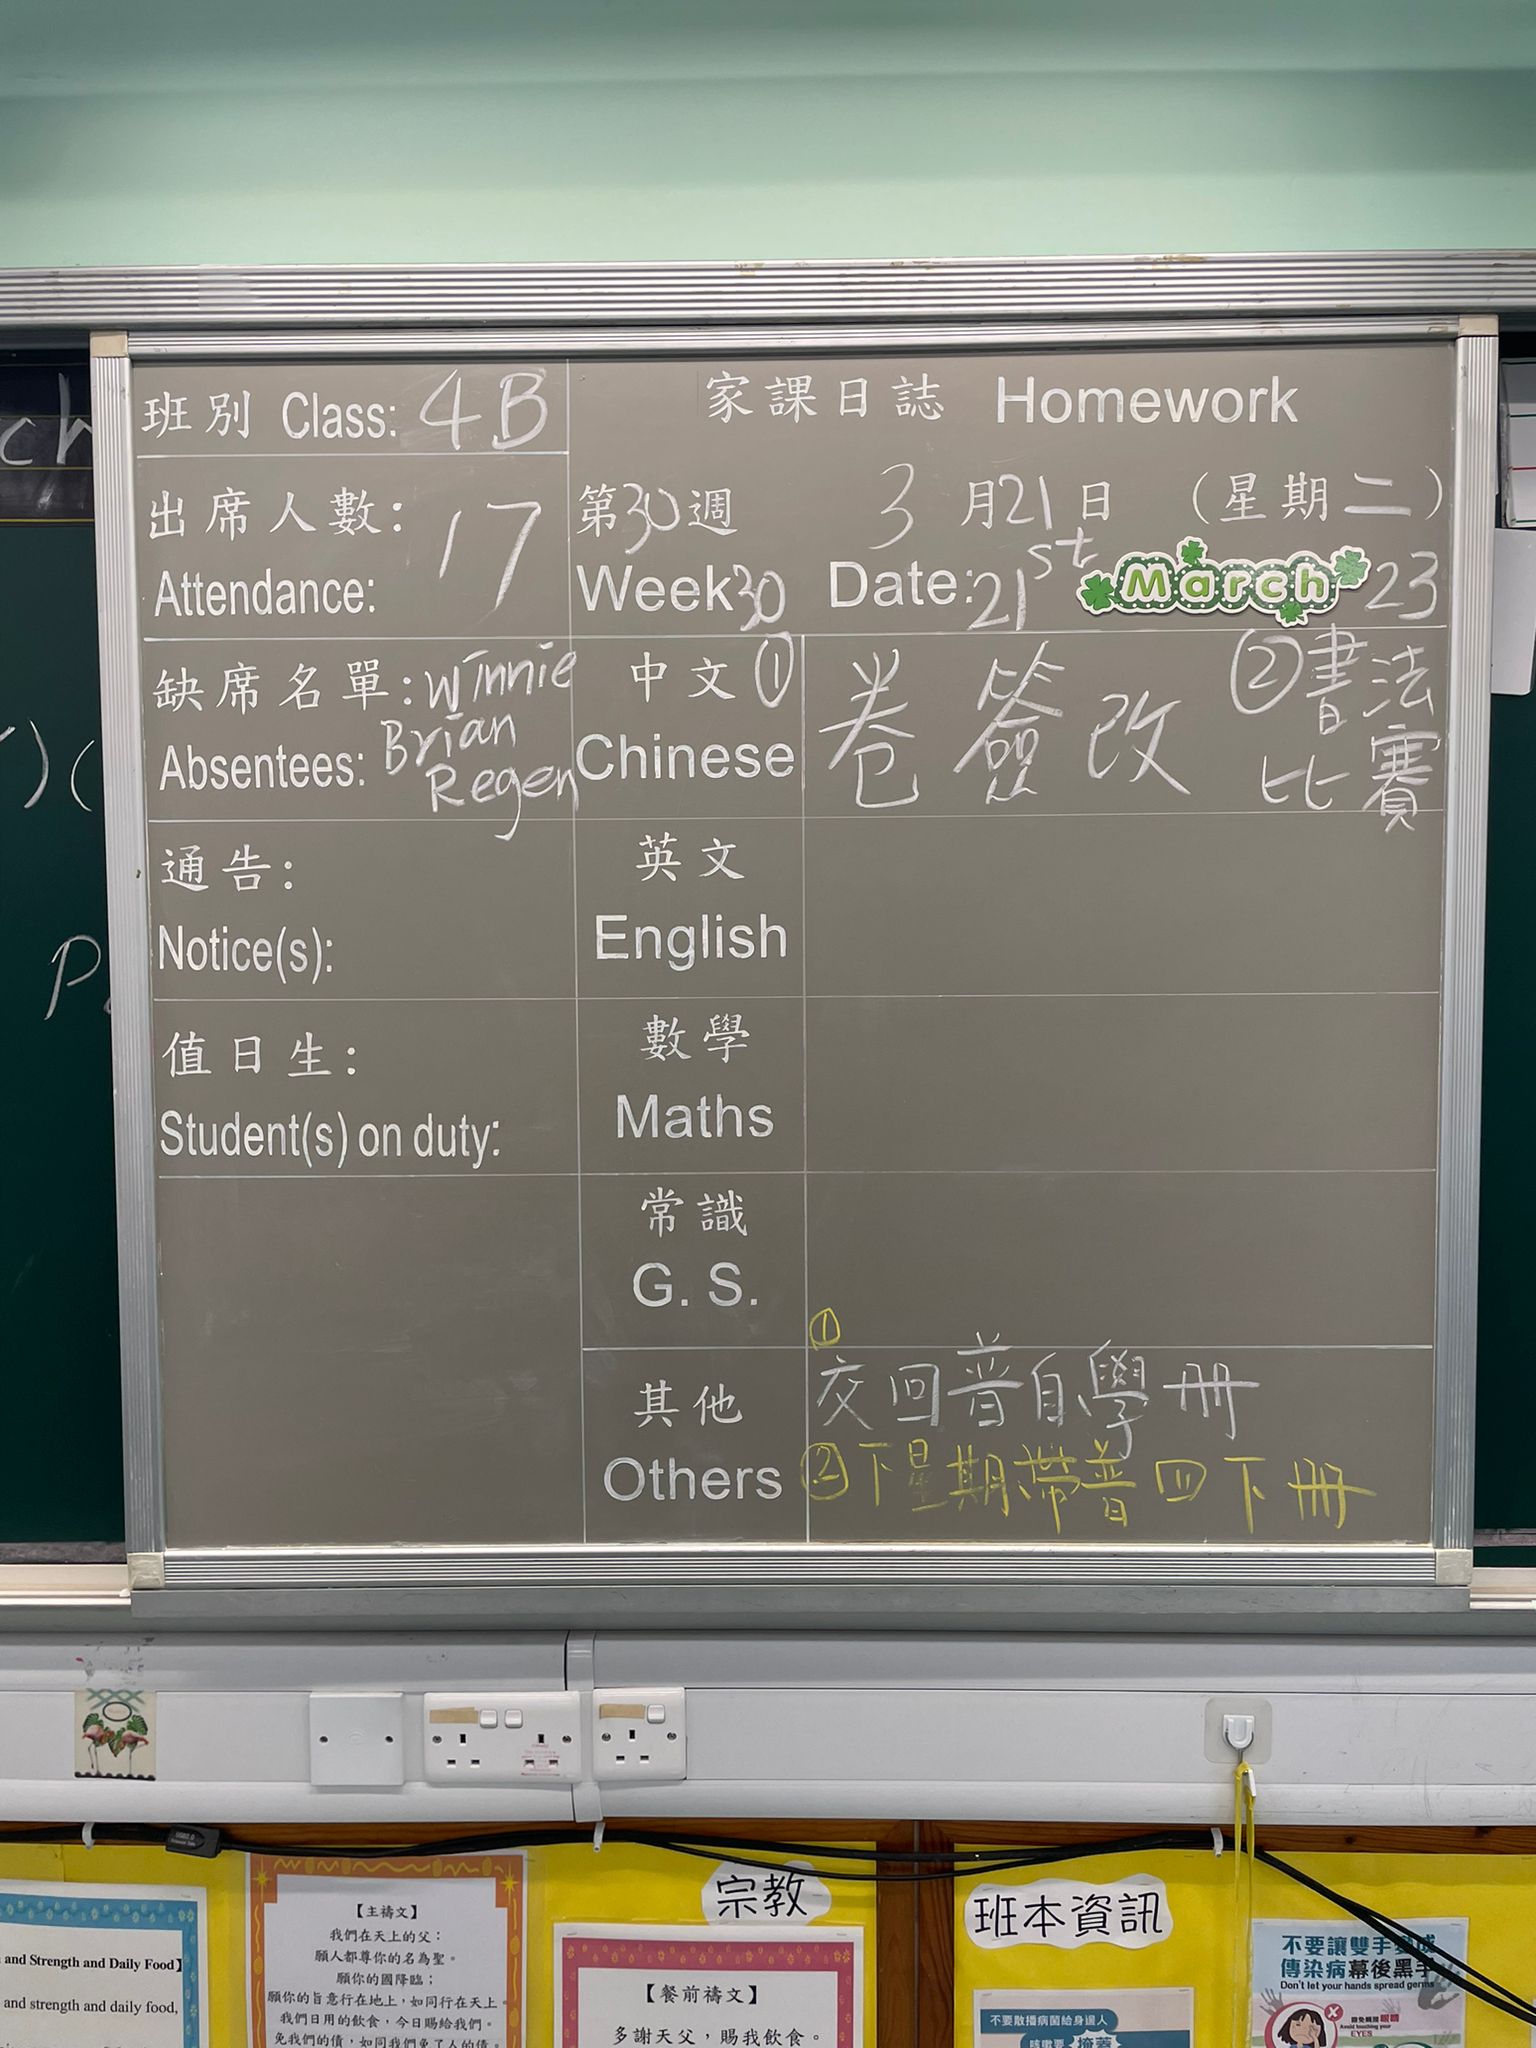 班別 Class: 4B
家課日誌 Homework
出席人數: 17
Attendance:
第30週 3月21日 (星期二)
Week30 Date: 21st March 23
缺席名單: Winnie
Absentees: Brian
Regen
中文 ① 卷簽改 ②書法
Chinese 比賽
通告:
Notice(s):
英文
English
值日生:
Student(s) on duty:
數學
Maths
常識
G. S.
其他
Others
①
交回普自學冊
②下星期帶普四下冊
宗教
班本資訊
and Strength and Daily Food】
and strength and daily food,
【主禱文】
我們在天上的父：
願人都尊你的名為聖。
願你的國降臨；
願你的旨意行在地上，如同行在天上。
我們日用的飲食，今日賜給我們。
免我們的債，如同我們免了人的債。
【餐前禱文】
多謝天父，賜我飲食。
不要散播病菌給身邊人
咳嗽要 掩蓋
不要讓雙手變成
傳染病幕後黑手
Don't let your hands spread germs
避免觸摸眼睛
Avoid touching your
EYES